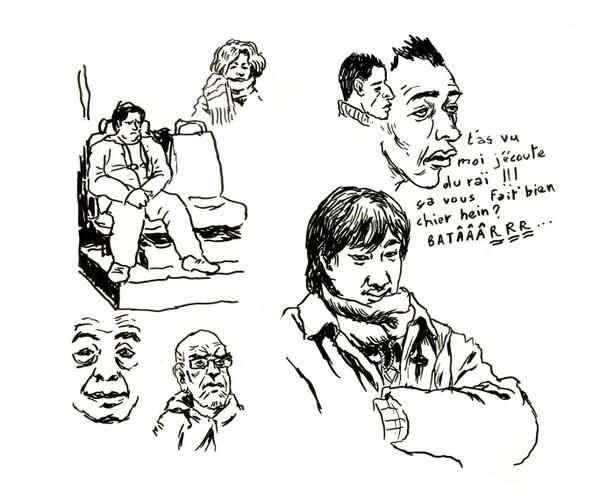 t'as vu
moi j'écoute
du raï !!!
ça vous fait bien
chier hein?
BATÂÂÂRRR...